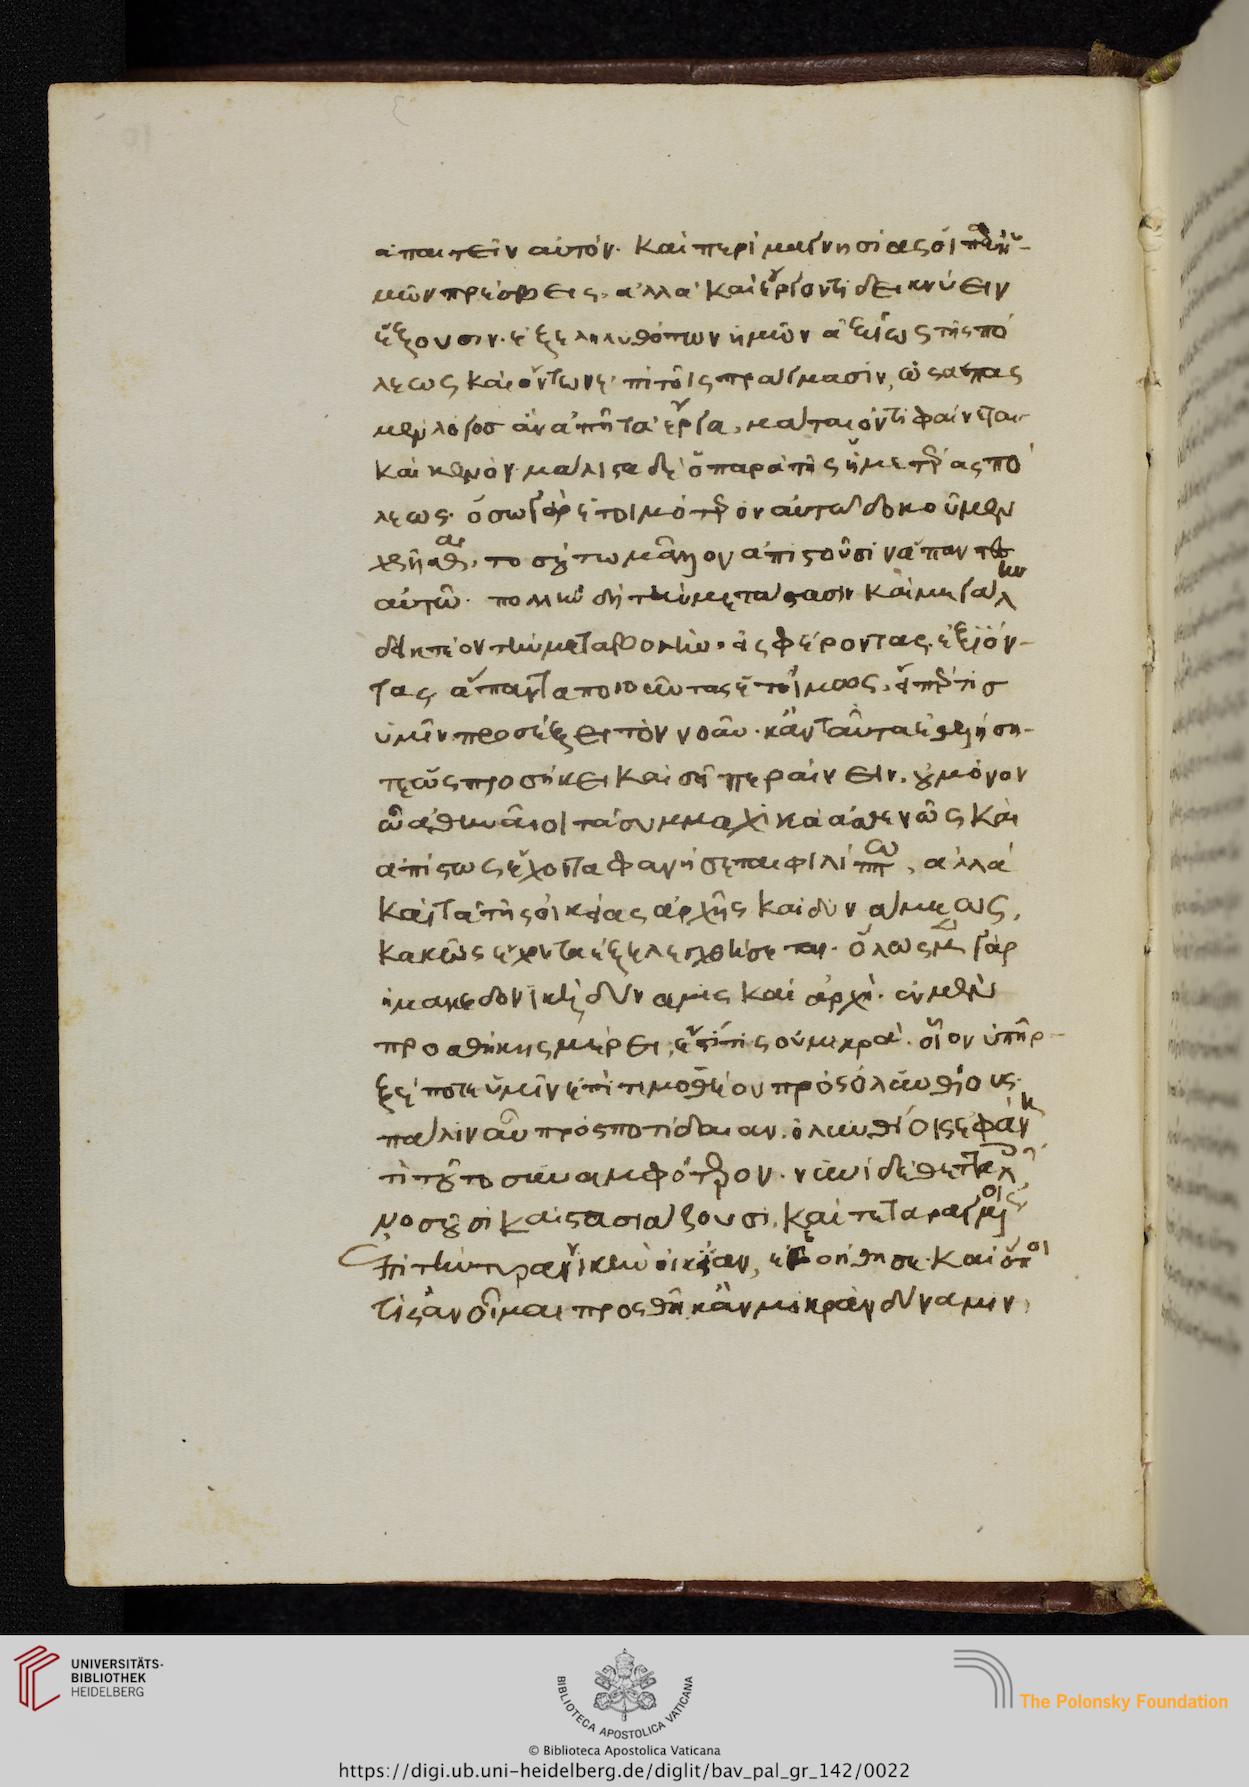 ἀπαιτεῖν αὐτόν. καὶ περὶ μαγνησίας οἱ παρ' ἡ-
μῶν πρέσβεις. ἀλλὰ καὶ ἔργόν τι δεικνύειν
ἕξουσιν. ἐξεληλυθότων ἡμῶν ἀξίως τῆς πό
λεως καὶ ὄντων ἐπὶ τοῖς πράγμασιν, ὡς ἅπας
μὲν λόγος ἂν ἀπῆ τὰ ἔργα, μάταιόν τι φαίνεται
καὶ κενόν. μάλιστα δὲ ὁ παρὰ τῆς ἡμετέρας πό
λεως. ὅσω γὰρ ἑτοιμότερον αὐτῶ δοκοῦμεν
χρῆσθαι, τοσούτω μᾶλλον ἀπιστοῦσιν ἅπαντες
αὐτῶ. πολλὴν δὴ τὴν μετάστασιν καὶ μεγάλην
δεικτέον τὴν μεταβολὴν. εἰσφέροντας. ἐξιόν-
τας, ἅπαντα ποιοῦντας ἑτοίμως. εἴπέρ τις
ὑμῖν προσέξει τὸν νοῦν. κἂν ταῦτα ἐθελήση-
τε ὡς προσήκει καὶ δὴ περαίνειν. οὐ μόνον
ὦ ἀθηναῖοι τὰ συμμαχικὰ ἀσθενῶς καὶ
ἀπίστως ἔχοντα φανήσεται φιλίππω, ἀλλὰ
καὶ τὰ τῆς οἰκείας ἀρχῆς καὶ δυνάμεως,
κακῶς ἔχοντα ἐξελεγχθήσεται. ὅλως μὲν γὰρ
ἡ μακεδονικὴ δύναμις καὶ ἀρχὴ. ἐν μὲν
προσθήκης μέρει, ἐστί τις οὐ μικρά. οἷον ὑπῆρ-
ξέ ποτε ὑμῖν ἐπὶ τιμοθέου πρὸς ὀλυνθίους.
πάλιν αὖ πρὸς ποτίδαιαν. ὀλυνθίοις ἐφάνη
τι τοῦτο συναμφότερον. νυνὶ δὲ θετταλοῖς
νοσοῦσι καὶ στασιάζουσι, καὶ τεταραγμένοις
ἐπὶ τὴν τυραννικὴν οἰκίαν, ἐβοήθησε. καὶ ὅποι
τίς ἂν οἶμαι προσθῆ κἂν μικρὰν δύναμιν,
UNIVERSITÄTS-
BIBLIOTHEK
HEIDELBERG
BIBLIOTECA APOSTOLICA VATICANA
The Polonsky Foundation
© Biblioteca Apostolica Vaticana
https://digi.ub.uni-heidelberg.de/diglit/bav_pal_gr_142/0022